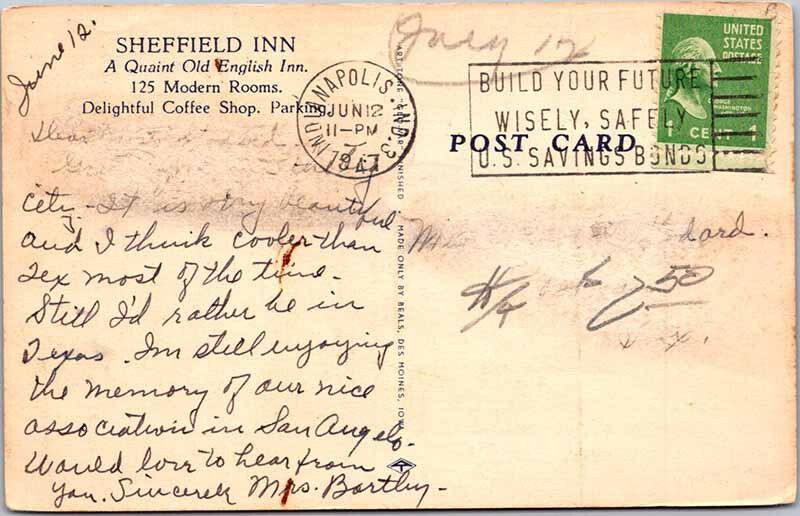 June 12.
SHEFFIELD INN
A Quaint Old English Inn.
125 Modern Rooms.
Delightful Coffee Shop. Parking
July 12
INDIANAPOLIS, IND. 3
JUN 12
11-PM
1947
BUILD YOUR FUTURE
WISELY, SAFELY
U.S. SAVINGS BONDS
UNITED
STATES
POSTAGE
GEORGE
WASHINGTON
1 CENT 1
POST CARD
Dear
city - It is very beautiful
and I think cooler than
Tex most of the time -
Still I'd rather be in
Texas. Im still enjoying
the memory of our nice
association in San Angelo.
Would love to hear from
you. Sincerely Mrs. Bartley -
MADE ONLY BY BEALS, DES MOINES, IOWA
dard.
#4
7 50